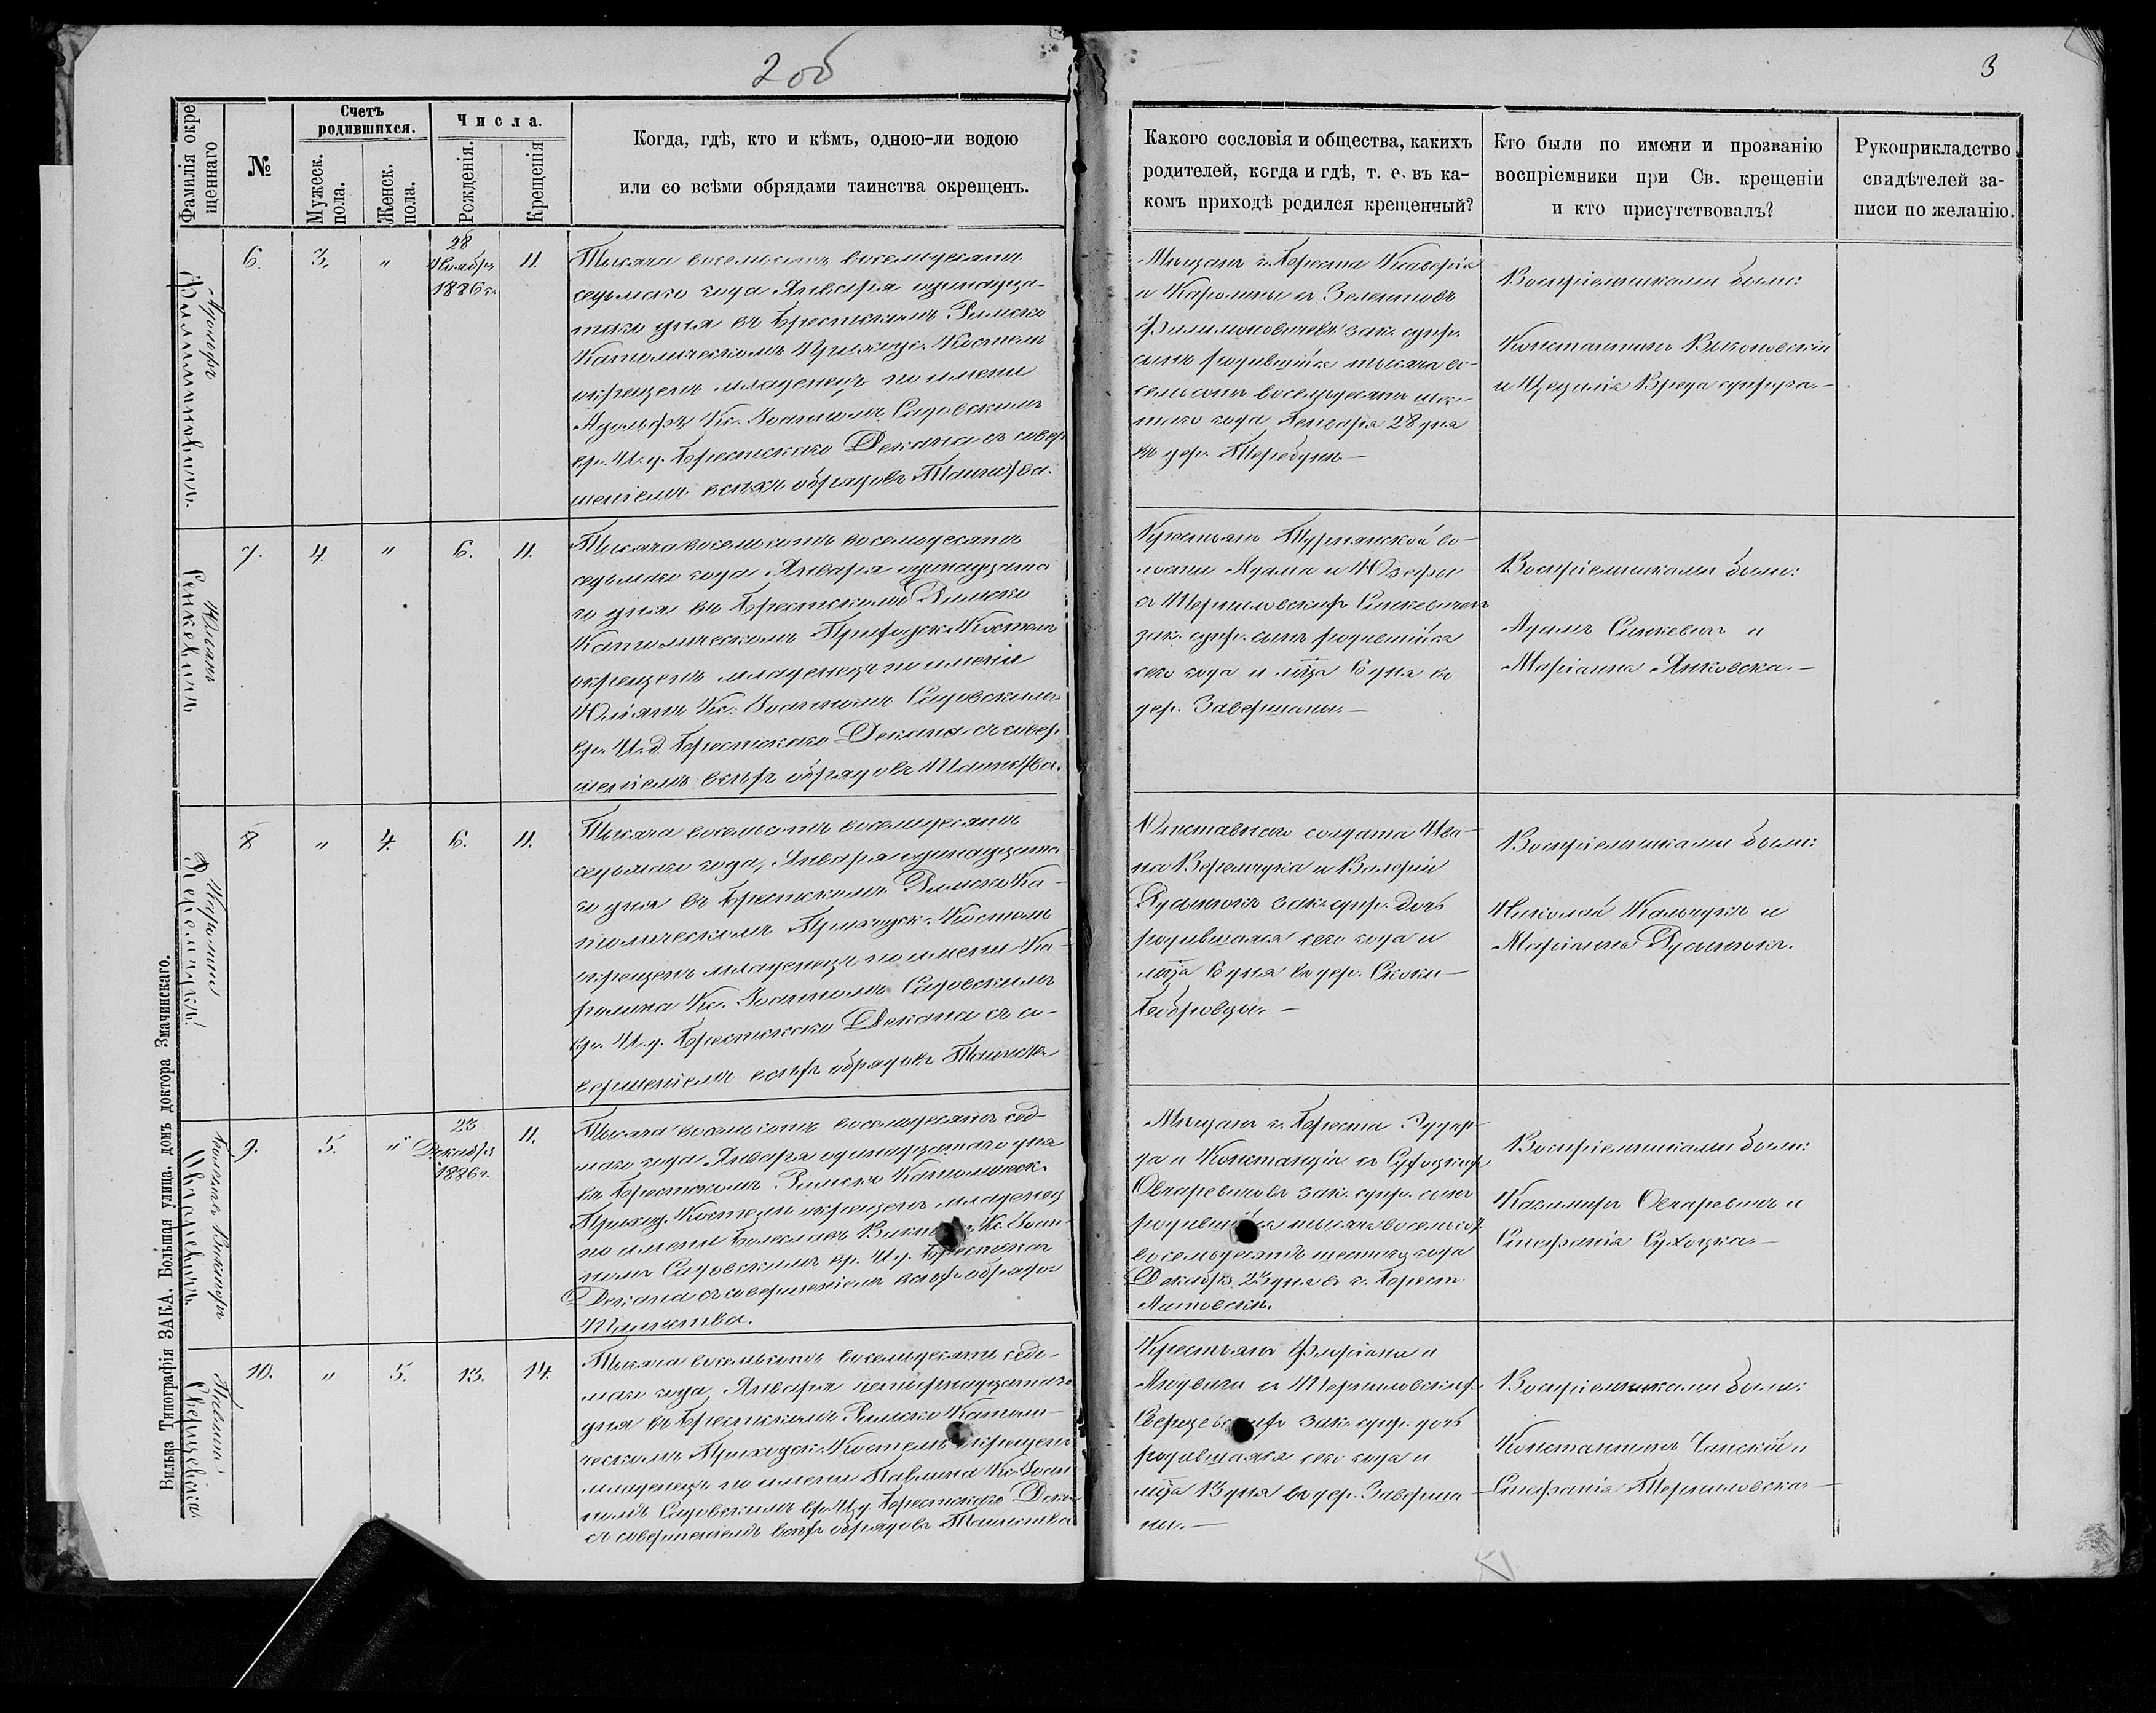 2 об
3
Фамилія окре
щеннаго
№
Счетъ
родившихся.
Мужеск.
пола.
Женск.
пола.
Числа.
Рожденія.
Крещенія
Когда, гдѣ, кто и кѣмъ, одною-ли водою
или со всѣми обрядами таинства окрещенъ.
Какого сословія и общества, какихъ
родителей, когда и гдѣ, т. е. въ ка-
комъ приходѣ родился крещенный?
Кто были по имени и прозванію
воспріемники при Св. крещеніи
и кто присутствовалъ?
Рукоприкладство
свидѣтелей за-
писи по желанію.
Адольфъ
Филимоновичъ.
6.
3.
"
28
Ноября
1886 г.
11.
Тысяча восемьсотъ восемьдесятъ
седьмаго года Января одинадца-
таго дня въ Брестскомъ Римско
Католическомъ Приходс. Костелѣ
окрещенъ младенецъ по имени
Адольфъ Кс. Іоанномъ Садовскимъ
вр. И. д. Брестскаго Декана съ совер-
шеніемъ всѣхъ обрядовъ Таинства.
Мѣщанъ г. Бреста Ксаверія
и Каролины съ
Филимоновичевъ зак. супр.
сынъ родившійся тысяча во-
семьсотъ восемьдесятъ шес-
таго года 28 дня
въ дер. Теребунь
Воспріемниками были:
Константинъ
и Цецилія
Юліянъ
Сенкевичъ
7.
4.
"
6.
11.
Тысяча восемьсотъ восемьдесятъ
седьмаго года Января одинадцата
го дня въ Брестскомъ Римско
Католическомъ Приходск. Костелѣ
окрещенъ младенецъ по имени
Юліянъ Кс. Іоанномъ Садовскимъ
вр. И. д. Брестскаго Декана съ совер-
шеніемъ всѣхъ обрядовъ Таинства.
Крестьянъ Турнянской во-
лости Адама и Юзефы
съ Синкевичевъ
зак. супр. сынъ родившійся
сего года и мца 6 дня въ
дер. Завершаны.
Воспріемниками были:
Адамъ Синкевичъ и
Маріанна Янковска.
Каролина
Веремчукъ.
8
"
4.
6.
11.
Тысяча восемьсотъ восемьдесятъ
седьмаго года, Января одинадцата
го дня въ Брестскомъ Римско Ка-
толическомъ Приходск. Костелѣ
окрещенъ младенецъ по имени Ка-
ролина Кс. Іоанномъ Садовскимъ
вр. И. д. Брестскаго Декана съ со-
вершеніемъ всѣхъ обрядовъ Таинства
Отставнаго солдата Ива-
на Веремчука и Валеріи
зак. супр. дочь
родившаяся сего года и
мца 6 дня въ дер. Скоки
Воспріемниками были:
Николай Кальчукъ и
Маріанна
Болеславъ Викторъ
Овчаревичъ.
9.
5.
"
23
Декабря
1886 г.
11.
Тысяча восемьсотъ восемьдесятъ седь-
маго года Января одинадцатаго дня
въ Брестскомъ Римско Католическ.
Приход. Костелѣ окрещенъ младенец
по имени Болеславъ Викторъ Кс. Іоан-
номъ Садовскимъ вр. И. д. Брестскаго
Декана съ совершеніемъ всѣхъ обрядов
Таинства.
Мѣщанъ г. Бреста Эдуар-
да и Констанціи съ Сухоцкихъ
Овчаревичовъ зак. супр. сынъ
родившійся тысяча восемьсот
восемьдесятъ шестаго года
Декабря 23 дня въ г. Брест
Литовскѣ.
Воспріемниками были:
Казимиръ Овчаревичъ и
Стефанія Сухоцка.
Павлина
Сверщевска
10.
"
5.
13.
14.
Тысяча восемьсотъ восемьдесятъ седь-
маго года, Января четырнадцатаго
дня въ Брестскомъ Римско Католи-
ческомъ Приходск. Костелѣ окрещенъ
младенецъ по имени Павлина Кс. Іоан
номъ Садовскимъ вр. И. д. Брестскаго Дека
съ совершеніемъ всѣхъ обрядовъ Таинства
Крестьянъ Флоріана и
Людвики съ Термиловскихъ
зак. супр. дочь
родившаяся сего года и
мца 13 дня въ дер. Заверша
ны.
Воспріемниками были:
Константинъ Чапскій и
Стефанія Термиловска
Вильна Типографія ЗАКА. Большая улица. домъ доктора Змачинскаго.